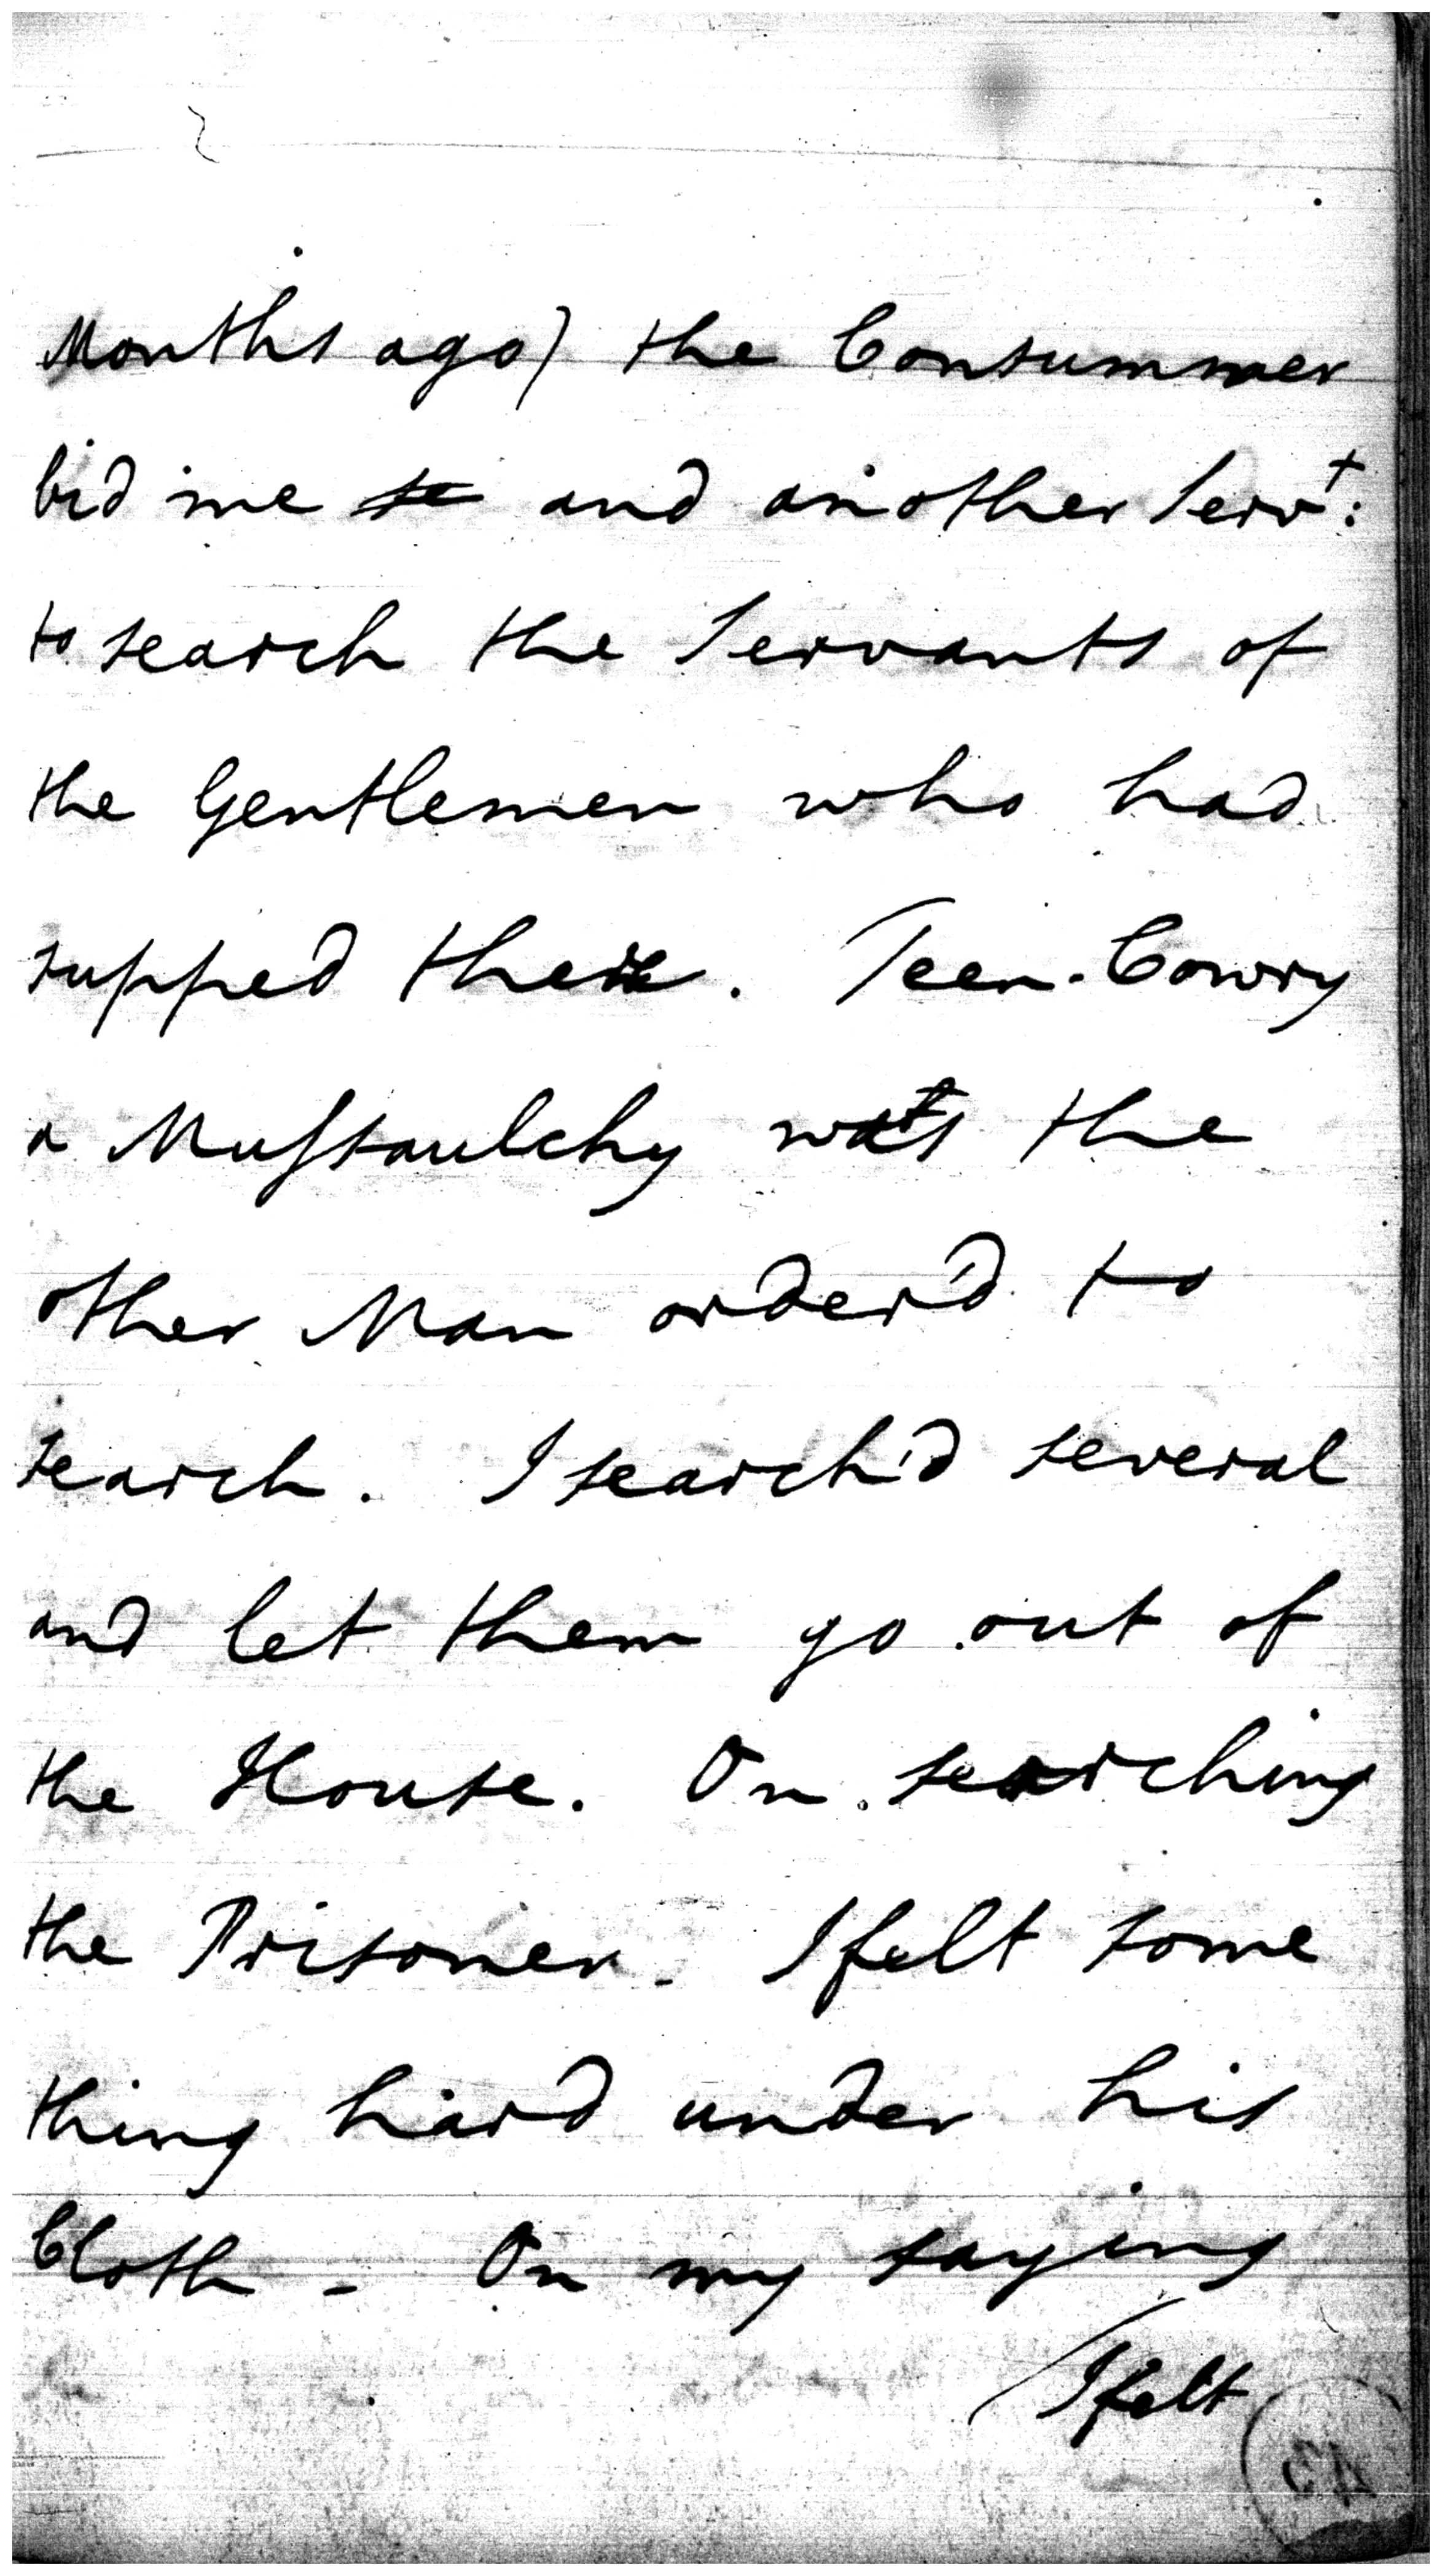 Months ago) the Consummer
bid me and another Servt:
to search the Servants of
the Gentlemen who had
supped there. Teen-Cowry
a Mussaulchy was the
other Man order'd to
search. I search'd several
and let them go out of
the House. On searching
the Prisoner. I felt some
thing hard under his
Cloth - On my saying
/I felt